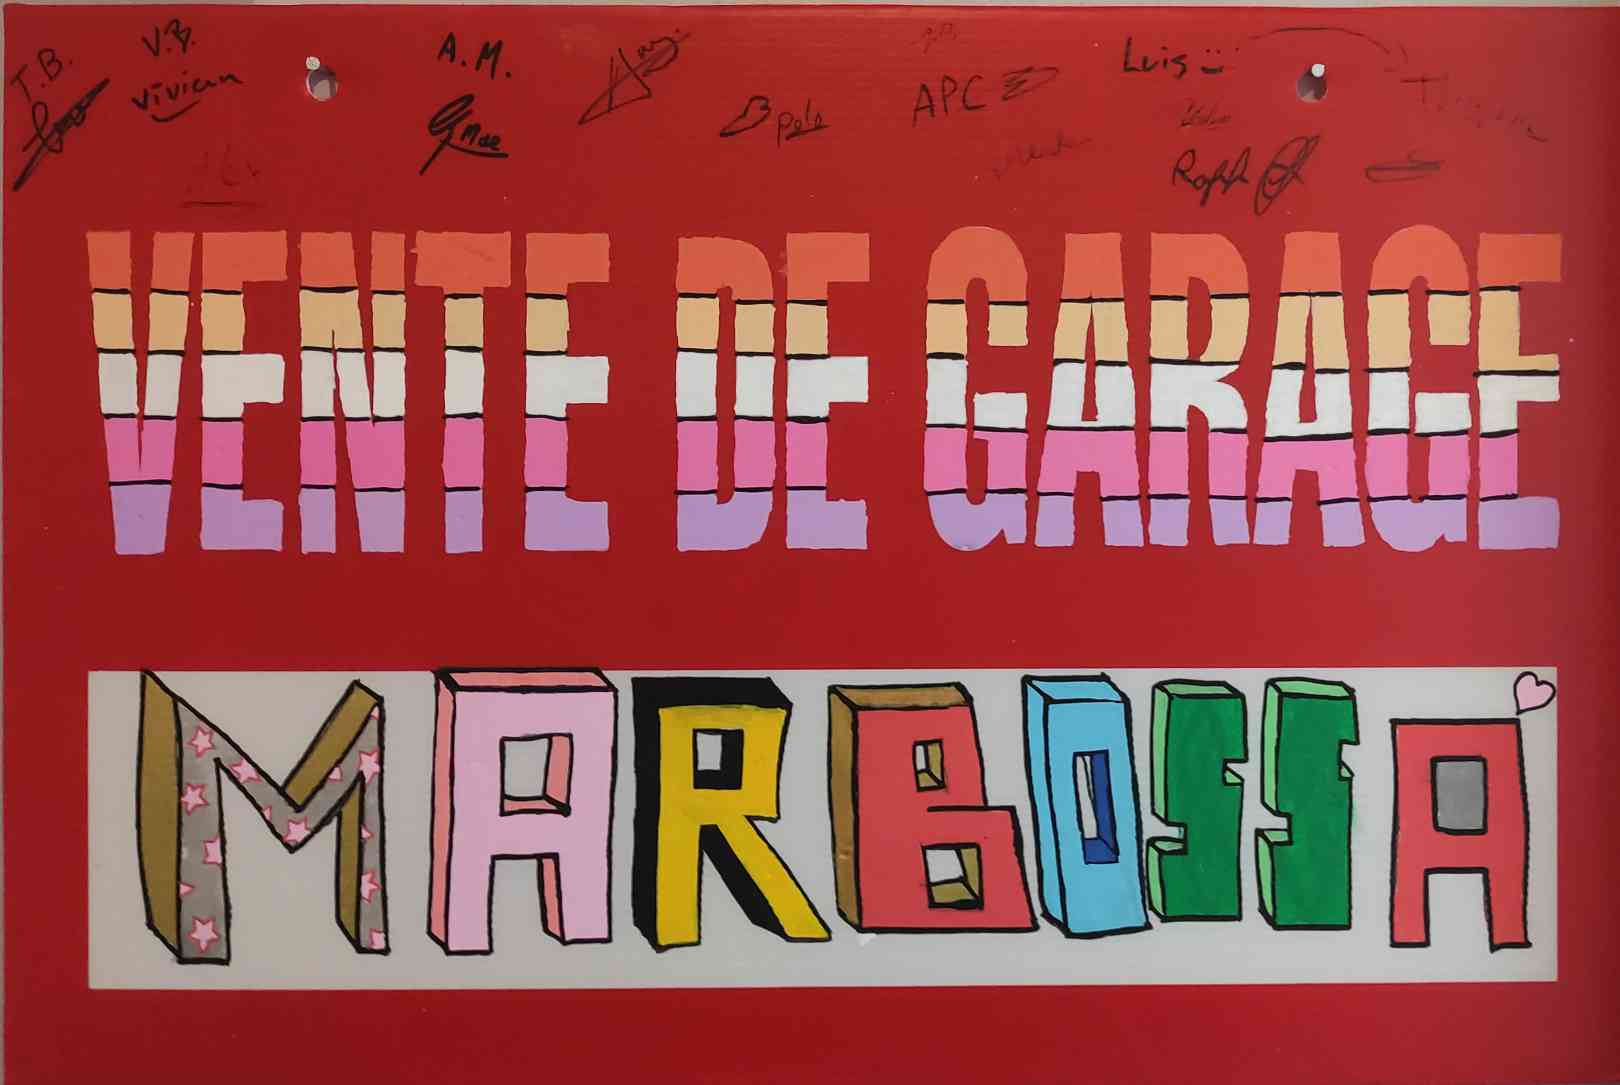 T.B.
V.B.
Vivian
A.M.
Mae
APC
Luis
VENTE DE GARAGE
MARBOSSA